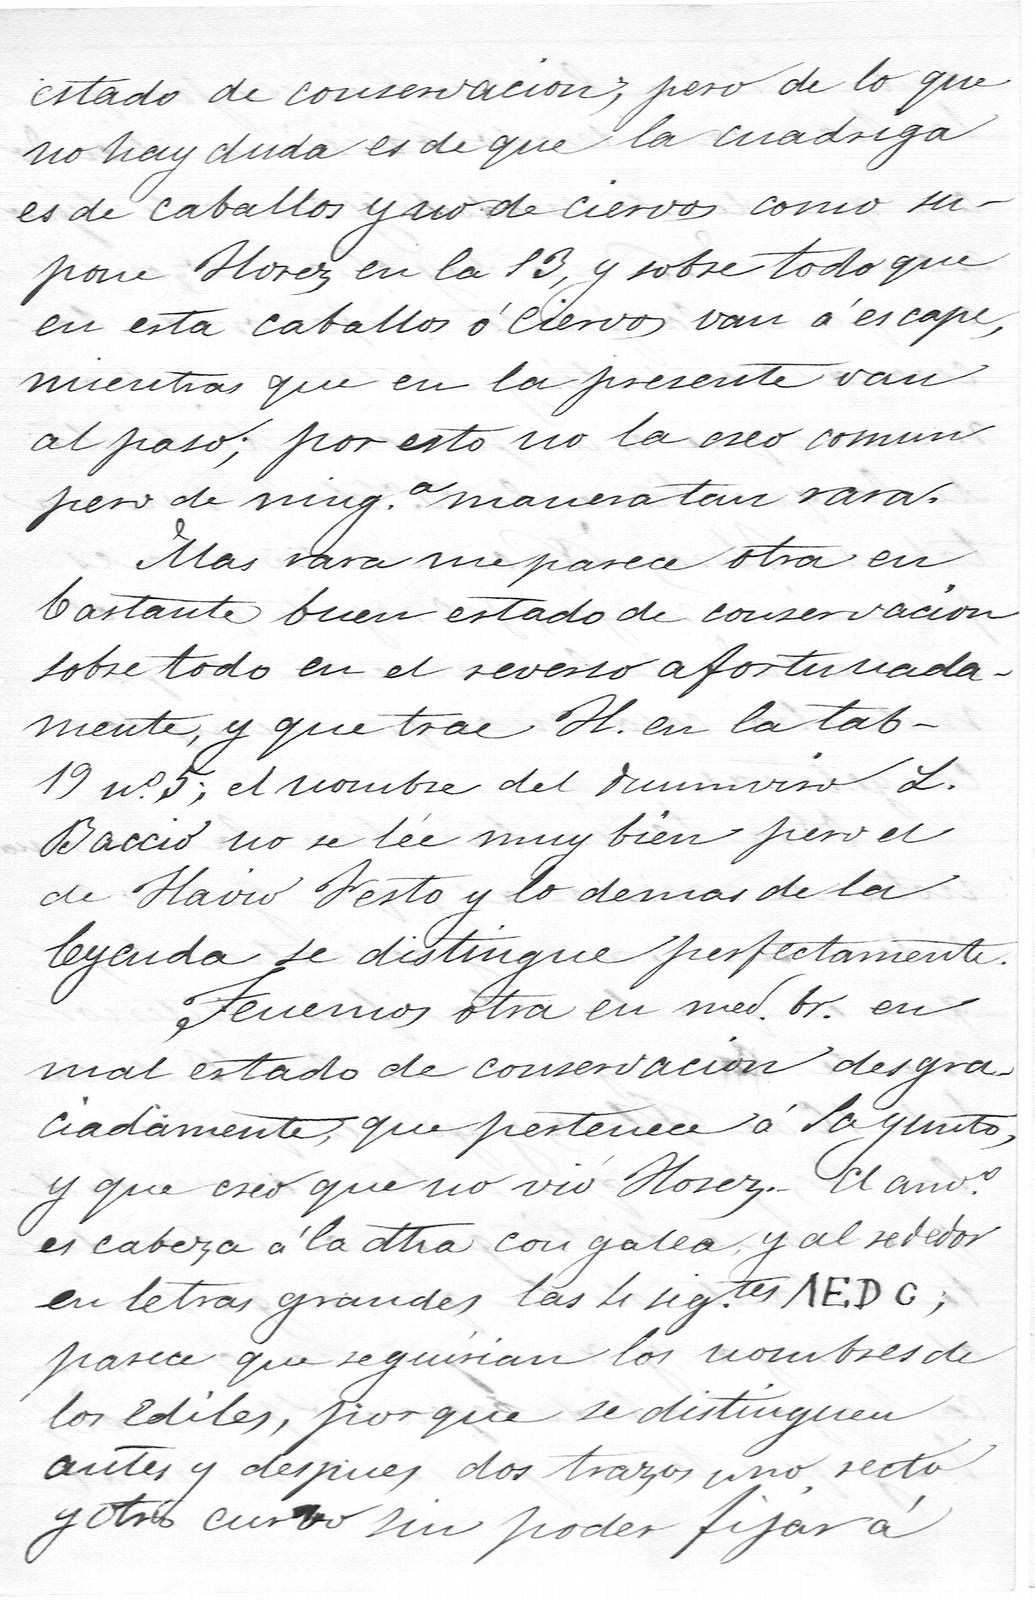 estado de conservacion; pero de lo que
no hay duda es de que la cuadriga
es de caballos y no de ciervos como su-
pone Florez en la 13, y sobre todo que
en esta caballos ó ciervos van á escape,
mientras que en la presente van
al paso; por esto no la creo comun
pero de ning.ª manera tan rara.
Mas rara me parece otra en
bastante buen estado de conservacion
sobre todo en el reverso afortunada-
mente, y que trae Fl. en la tab-
19 nº. 5; el nombre del duumviro L.
Baccio no se lée muy bien pero el
de Flavio Festo y lo demas de la
leyenda se distingue perfectamente.
Tenemos otra en med. br. en
mal estado de conservacion desgra-
ciadamente, que pertenece á Sagunto,
y que creo que no vió Florez.- El anv.º
es cabeza á la dtra con galea, y al rededor
en letras grandes las 4 sig.tes ΛEDC;
parece que seguirian los nombres de
los Ediles, porque se distinguen
antes y despues dos trazos uno recto
y otro curvo sin poder fijar á